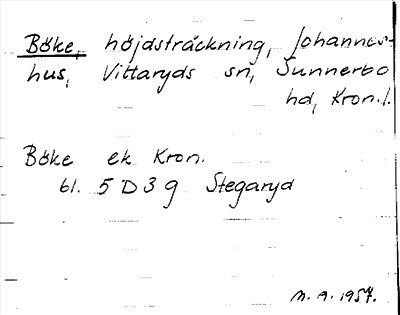 Böke, höjdsträckning, Johannes-
hus, Vittaryds sn, Sunnerbo
hd, Kron.l.
Böke ek Kron.
bl. 5 D 3 g Stegaryd
M. A. 1957.